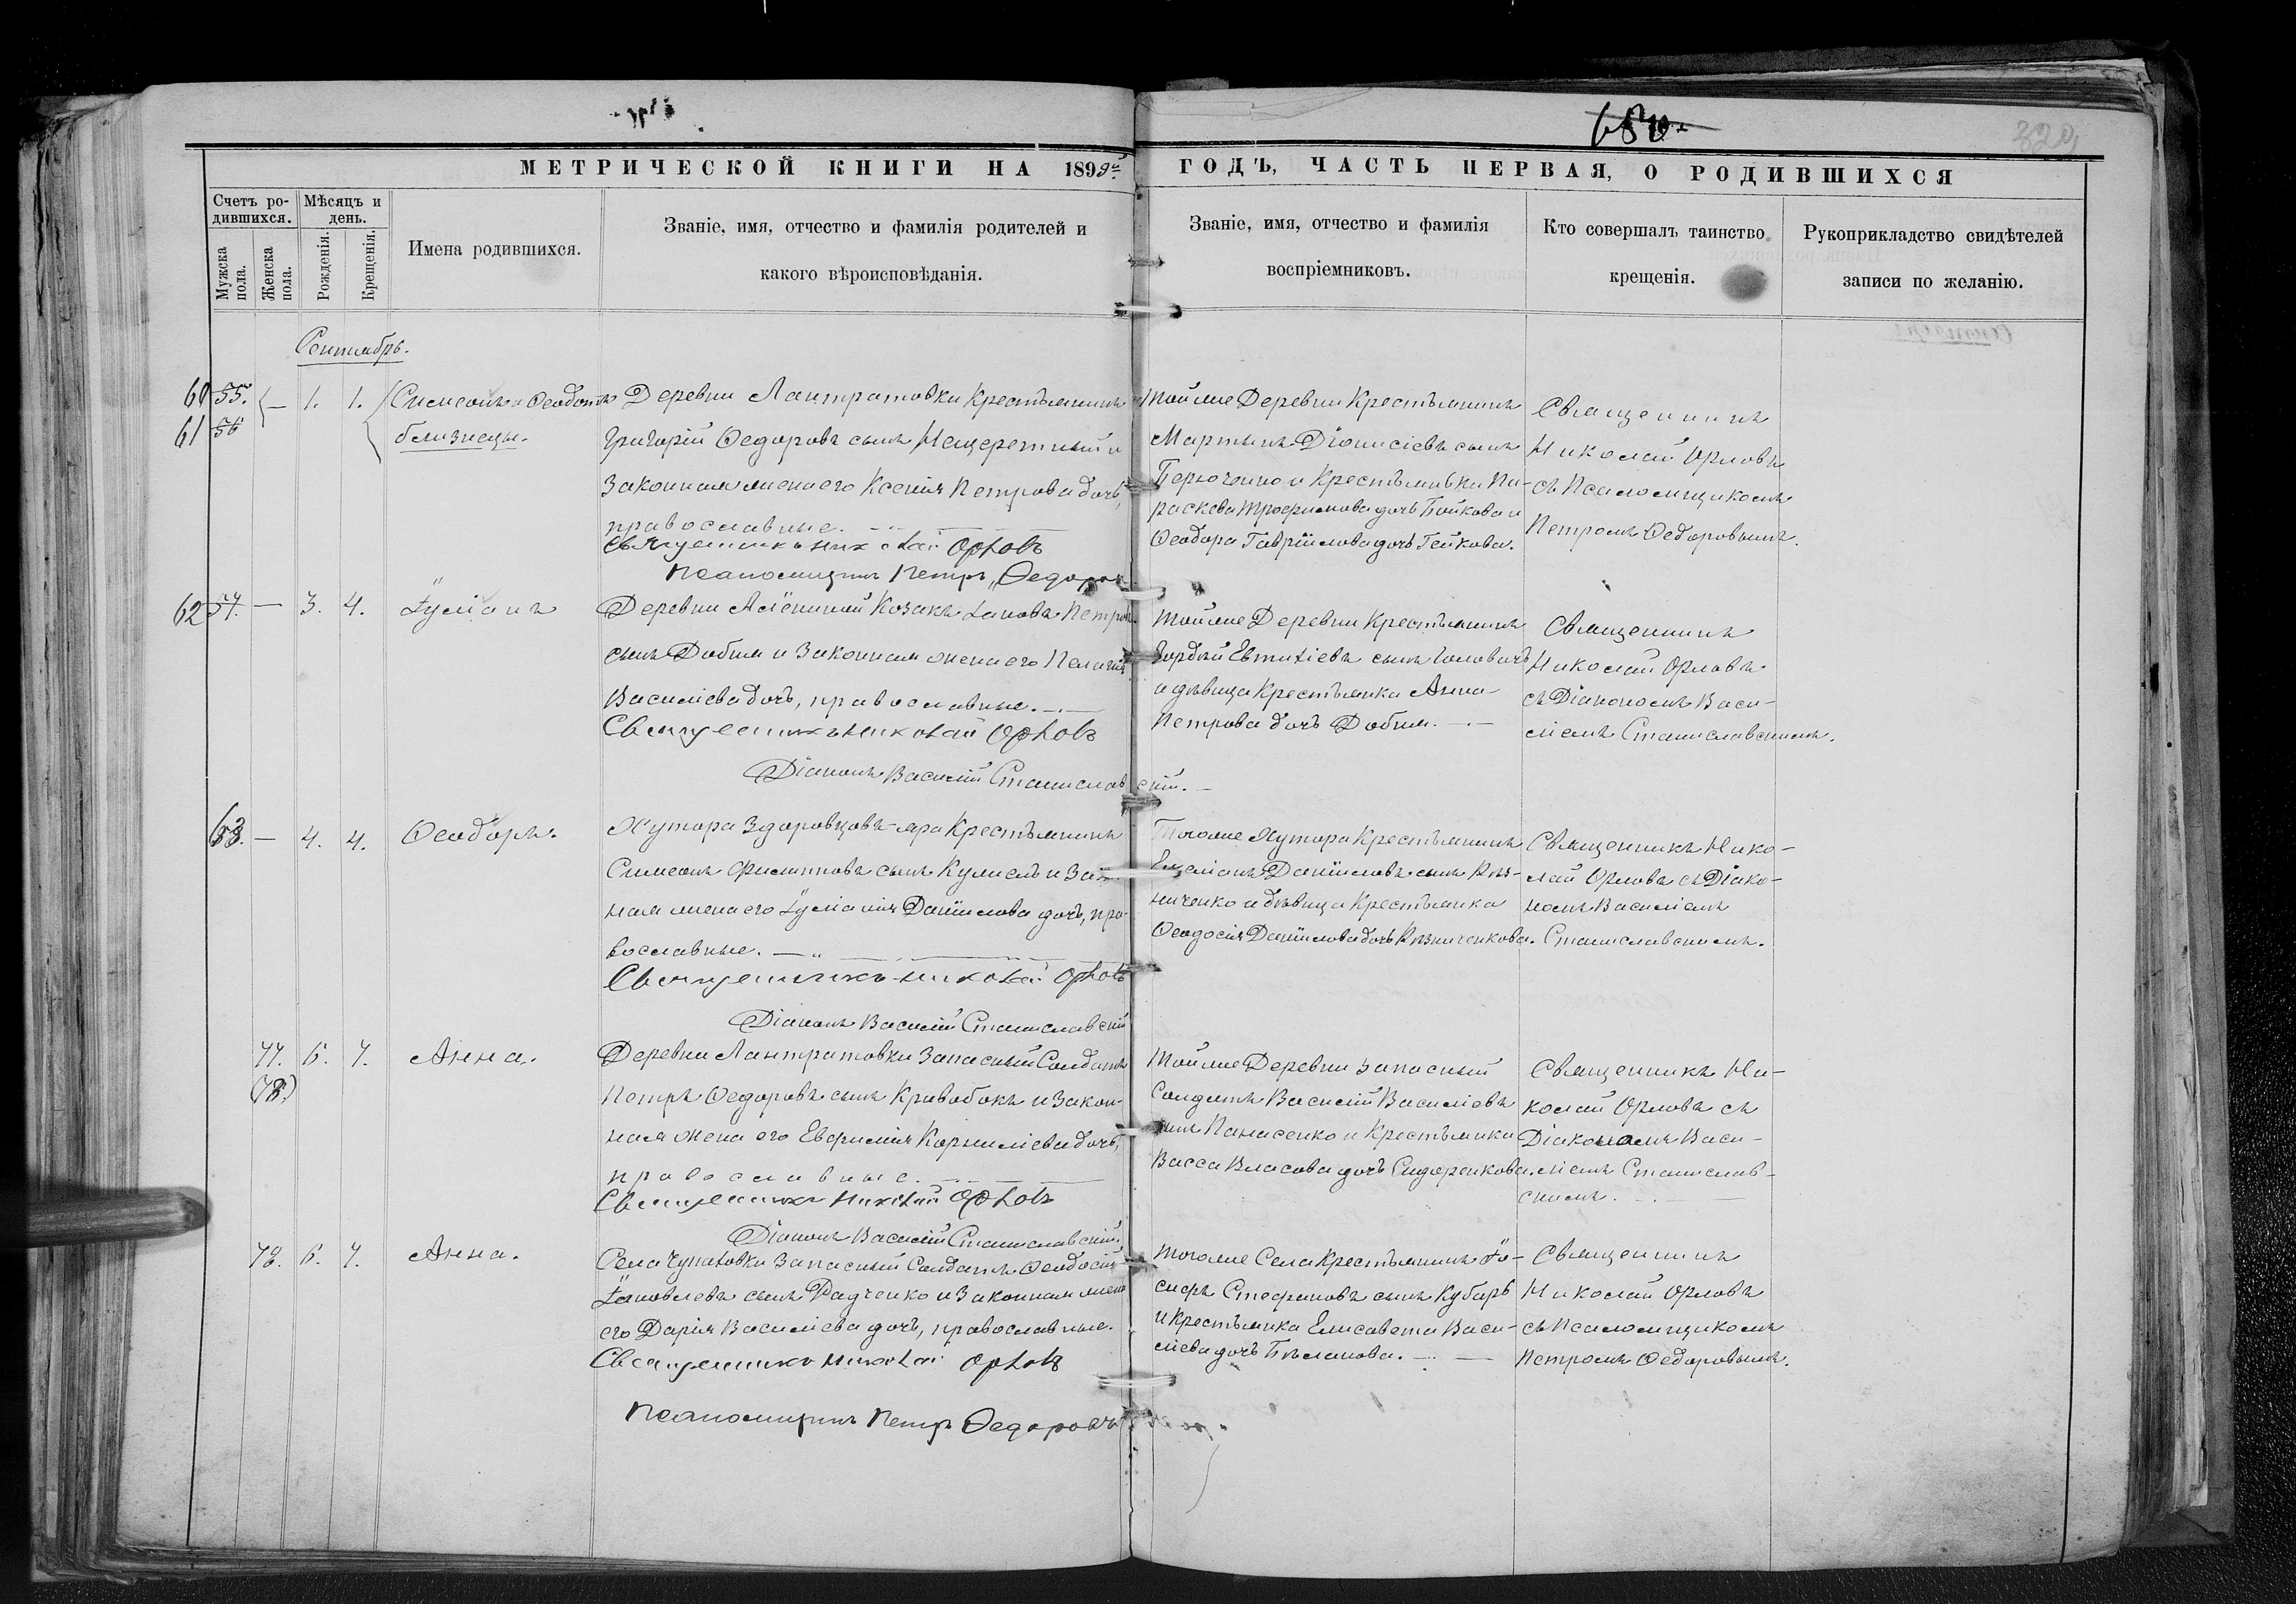 МЕТРИЧЕСКОЙ КНИГИ НА 1899й ГОДЪ, ЧАСТЬ ПЕРВАЯ, О РОДИВШИХСЯ
Счетъ ро-
дившихся.
Мужска
пола.
Женска
пола.
Мѣсяцъ и
день.
Рожденія.
Крещенія.
Имена родившихся.
Званіе, имя, отчество и фамилія родителей и
какого вѣроисповѣданія.
Званіе, имя, отчество и фамилія
воспріемниковъ.
Кто совершалъ таинство
крещенія.
Рукоприкладство свидѣтелей
записи по желанію.
Сентябрь.
60 55. — 1. 1.
61 56
Симеонъ и Ѳеодотъ
близнецы.
Деревни Лантратовки Крестьянинъ
Григорій Ѳедоровъ сынъ и
Законная жена его Ксенія Петрова дочь,
православные.
Священникъ Николай Орловъ
Псаломщикъ Петръ Ѳедоров
Тойже Деревни Крестьянинъ
Мартинъ Діонисіевъ сынъ
и Крестьянки Па-
раскева Трофимова дочь Бойкова и
Ѳеодора Гавріилова дочь Гейкова.
Священникъ
Николай Орловъ
съ Псаломщикомъ
Петромъ Ѳедоровымъ.
62 57. — 3. 4.
Іуліанъ
Деревни Козакъ Іаковъ Петров.
сынъ Добия и Законная жена его Пелагія
Василіева дочь, православные.
Священникъ Николай Орловъ
Діаконъ Василій Станиславскій.
Тойже Деревни Крестьянинъ
Гордѣй Евтихіевъ сынъ
и дѣвица Крестьянка Анна
Петрова дочь Добия.
Священникъ
Николай Орловъ
съ Діакономъ Васи-
ліемъ Станиславскимъ.
63. — 4. 4.
Ѳеодоръ.
Хутора Крестьянинъ
Симеонъ Филипповъ сынъ и Закон-
ная жена его Іуліанія Даніилова дочь, пра-
вославные.
Священникъ Николай Орловъ
Діаконъ Василій Станиславскій
Тогоже Хутора Крестьянинъ
Даніиловъ сынъ Рѣз-
ниченко и дѣвица Крестьянка
Ѳеодосія Даніилова дочь Рѣзниченкова.
Священникъ Нико-
лай Орловъ съ Діако-
номъ Василіемъ
Станиславскимъ.
77. 6. 7.
(78.)
Анна.
Деревни Лантратовки Запасный Солдатъ
Петръ Ѳедоровъ сынъ Кривобокъ и Закон-
ная жена его Евфимія Корниліева дочь,
православные.
Священникъ Николай Орловъ
Діаконъ Василій Станиславскій
Тойже Деревни Запасный
Солдатъ Василій Василіевъ
сынъ Панасенко и Крестьянка
Васса Власова дочь Сидоренкова.
Священникъ Ни-
колай Орловъ съ
Діакономъ Васи-
ліемъ Станислав-
скимъ.
78. 6. 7.
Анна.
Села Чупаховки Запасный Солдатъ Ѳеодосій
Іаковлевъ сынъ Радченко и Законная жена
его Дарія Василіева дочь, православные.
Священникъ Николай Орловъ
Псаломщикъ Петръ Ѳедоровъ
Тогоже Села Крестьянинъ Іо-
сифъ Стефановъ сынъ Кубарь
и Крестьянка Елисавета Васи-
ліева дочь
Священникъ
Николай Орловъ
съ Псаломщикомъ
Петромъ Ѳедоровымъ.